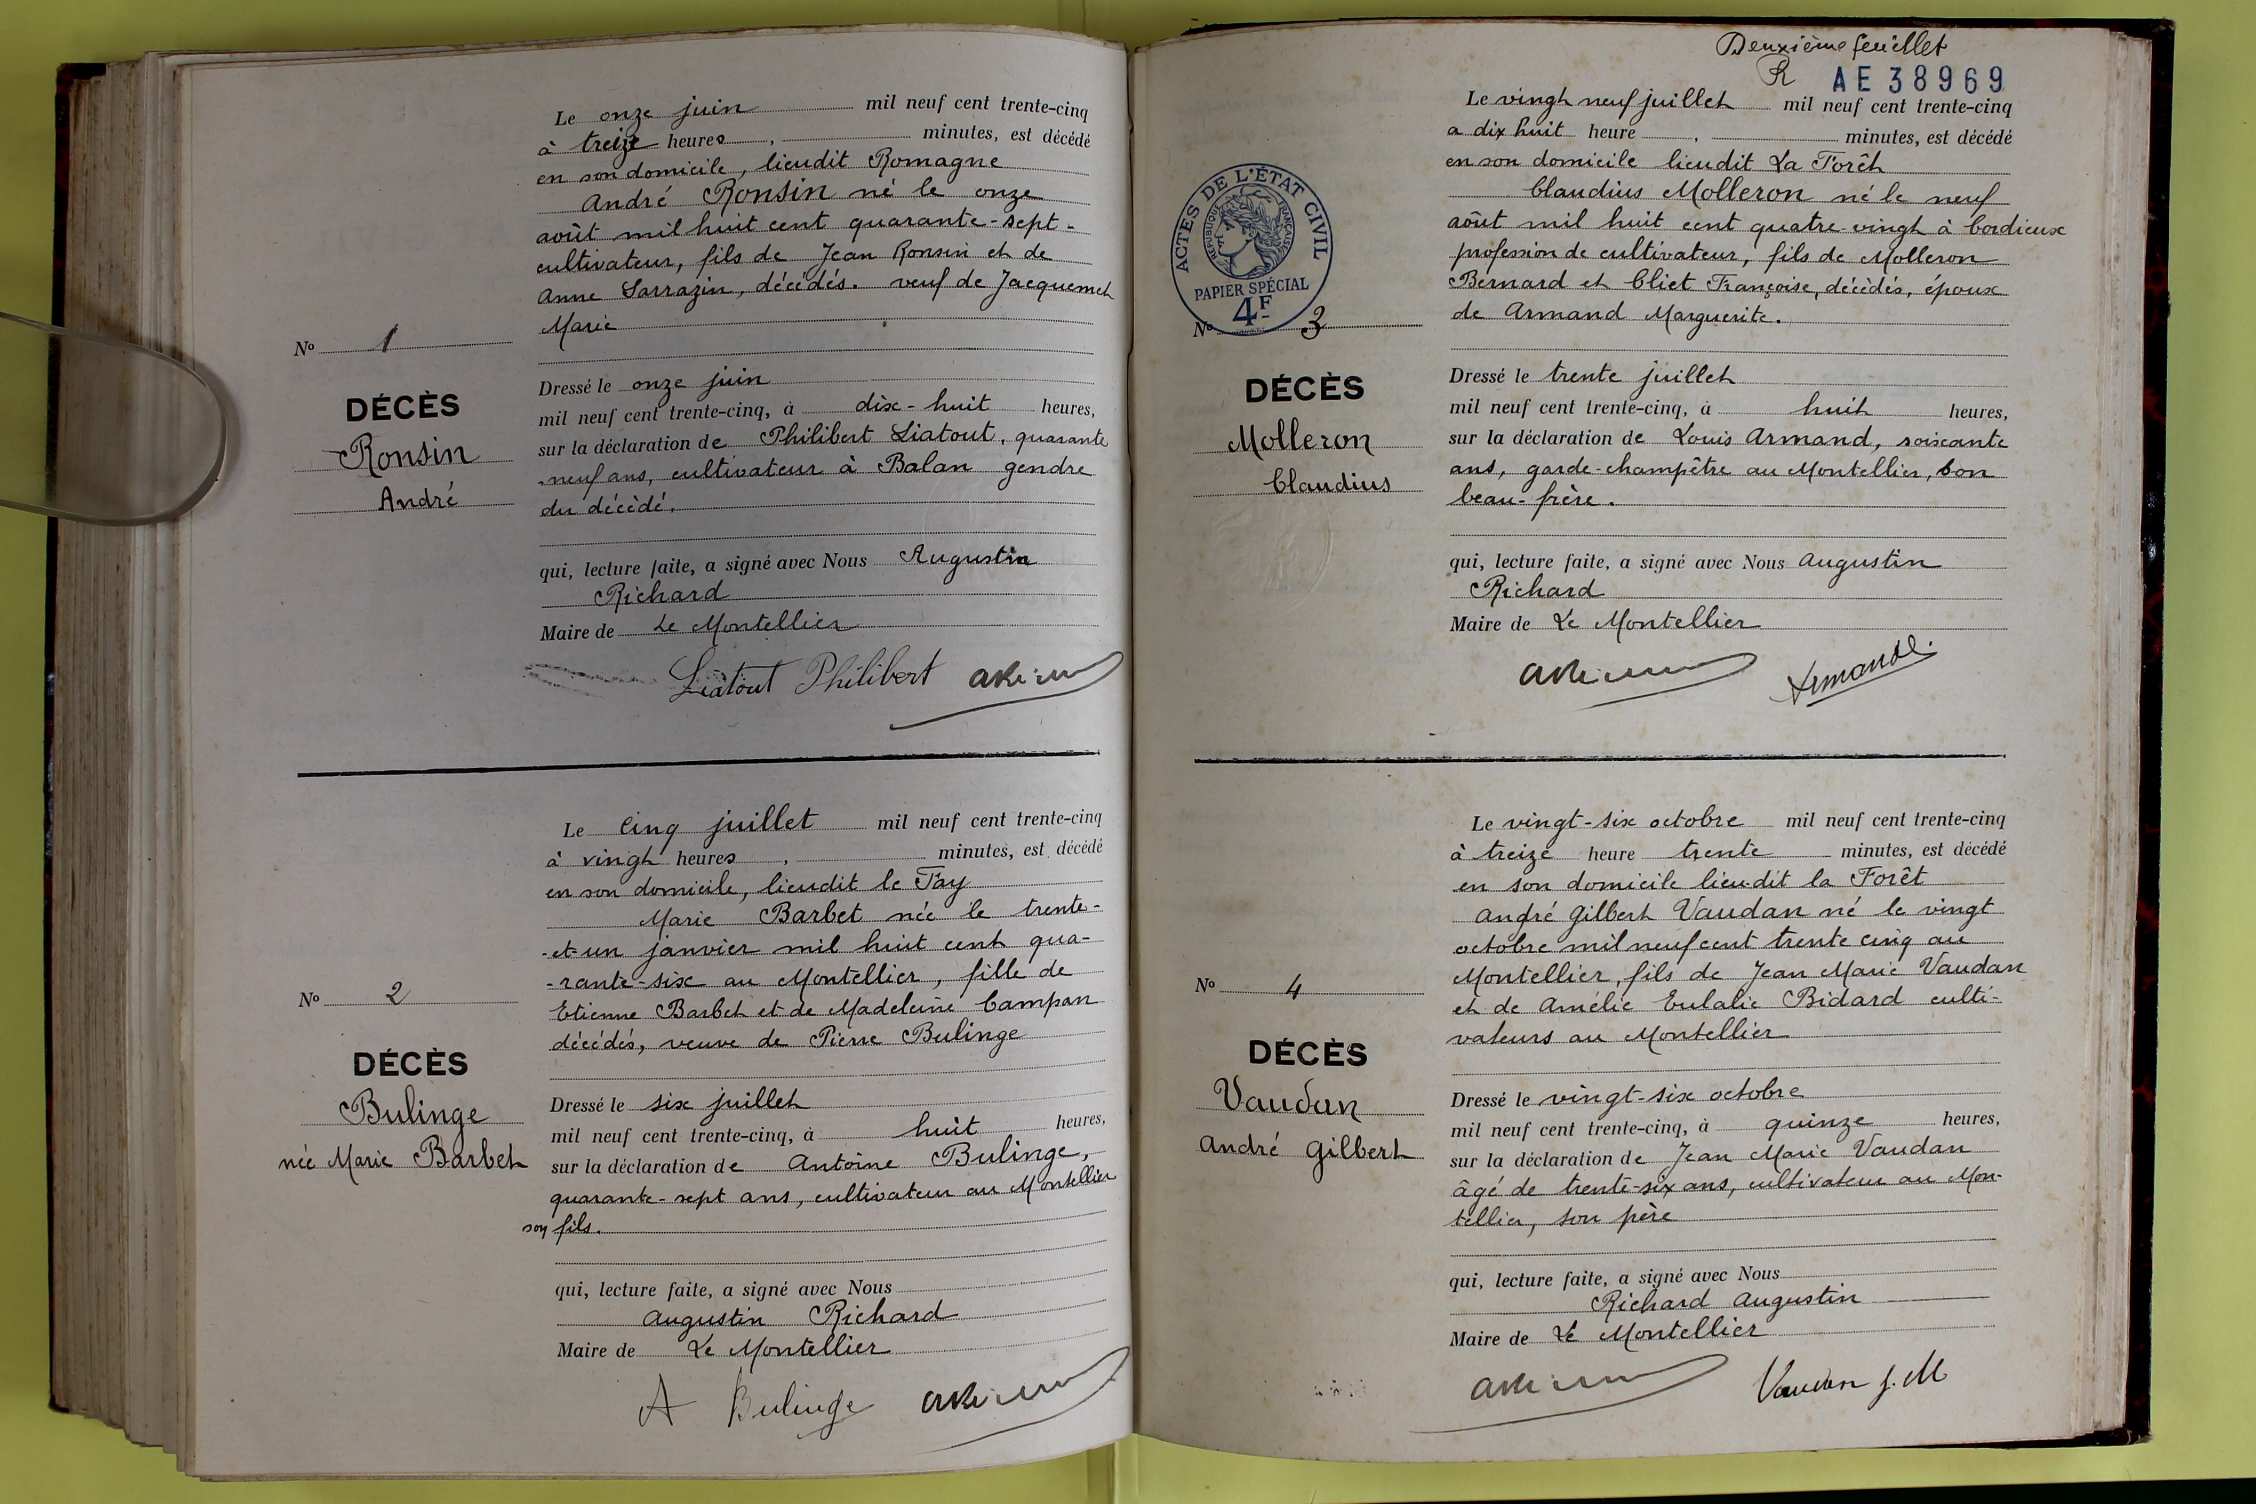 Le onze juin mil neuf cent trente-cinq
à treize heures, minutes, est décédé
en son domicile, lieudit Romagne
André Ronsin né le onze
août mil huit cent quarante-sept-
cultivateur, fils de Jean Ronsin et de
Anne Sarrazin, décédés. veuf de Jacquemet
Marie
Nº 1
DÉCÈS
Ronsin
André
Dressé le onze juin
mil neuf cent trente-cinq, à dix-huit heures,
sur la déclaration de Philibert Liatout, quarante
neuf ans, cultivateur à Balan gendre
du décédé.
qui, lecture faite, a signé avec Nous Augustin
Richard
Maire de Le Montellier
Liatout Philibert
Le cinq juillet mil neuf cent trente-cinq
à vingt heures, minutes, est décédé
en son domicile, lieudit le Fay
Marie Barbet née le trente-
-et-un janvier mil huit cent qua-
-rante-six au Montellier, fille de
Etienne Barbet et de Madeleine Campan
décédés, veuve de Pierre Bulinge
Nº 2
DÉCÈS
Bulinge
née Marie Barbet
Dressé le six juillet
mil neuf cent trente-cinq, à huit heures,
sur la déclaration de Antoine Bulinge,
quarante-sept ans, cultivateur au Montellier
son fils.
qui, lecture faite, a signé avec Nous
Augustin Richard
Maire de Le Montellier
A Bulinge
Deuxième feuillet
R AE38969
Le vingt neuf juillet mil neuf cent trente-cinq
a dix huit heure, minutes, est décédé
en son domicile lieudit La Forêt
Claudius Molleron né le neuf
août mil huit cent quatre-vingt à Cordieux
profession de cultivateur, fils de Molleron
Bernard et Cliet Françoise, décédés, époux
de Armand Marguerite.
ACTES DE L'ÉTAT CIVIL
RÉPUBLIQUE FRANÇAISE
PAPIER SPÉCIAL
4F
Nº 3
DÉCÈS
Molleron
Claudius
Dressé le trente juillet
mil neuf cent trente-cinq, à huit heures,
sur la déclaration de Louis Armand, soixante
ans, garde-champêtre au Montellier, son
beau-frère.
qui, lecture faite, a signé avec Nous Augustin
Richard
Maire de Le Montellier
Armand L.
Le vingt-six octobre mil neuf cent trente-cinq
à treize heure trente minutes, est décédé
en son domicile lieu-dit la Forêt
André Gilbert Vaudan né le vingt
octobre mil neuf cent trente cinq au
Montellier, fils de Jean Marie Vaudan
et de Amélie Eulalie Bidard culti-
vateurs au Montellier
Nº 4
DÉCÈS
Vaudan
André Gilbert
Dressé le vingt-six octobre
mil neuf cent trente-cinq, à quinze heures,
sur la déclaration de Jean Marie Vaudan
âgé de trente-six ans, cultivateur au Mon-
tellier, son père
qui, lecture faite, a signé avec Nous
Richard Augustin
Maire de Le Montellier
Vaudan J. M